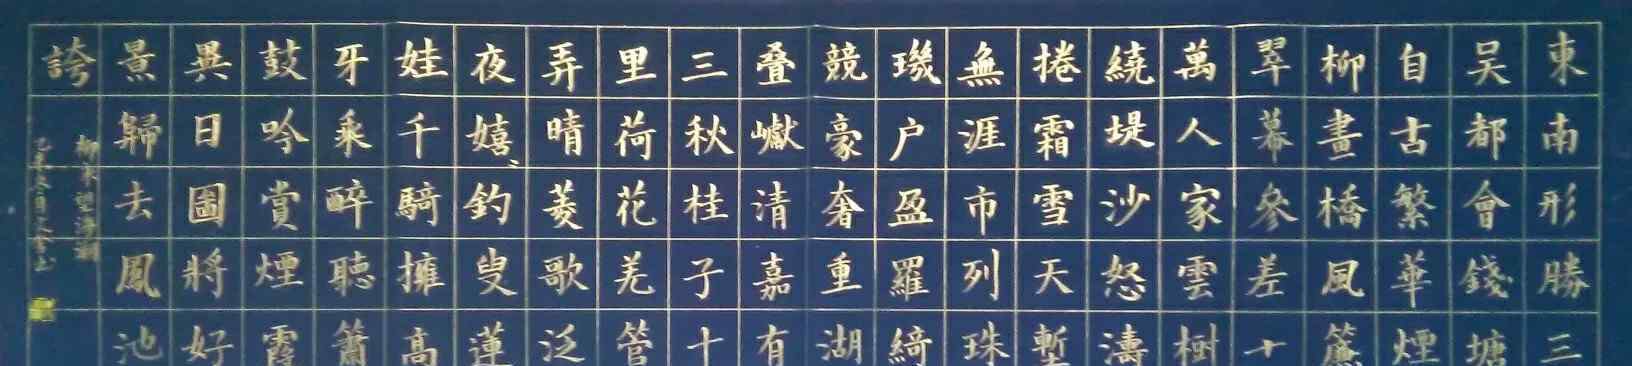 東南形勝三
吴都會錢塘
自古繁華煙
柳畫橋風簾
翠幕參差十
萬人家雲樹
繞堤沙怒濤
捲霜雪天塹
無涯市列珠
璣户盈羅綺
競豪奢重湖
叠巘清嘉有
三秋桂子十
里荷花羌管
弄晴菱歌泛
夜嬉、釣叟蓮
娃千騎擁高
牙乘醉聽簫
鼓吟賞煙霞
異日圖將好
景歸去鳳池
誇
柳永望海潮